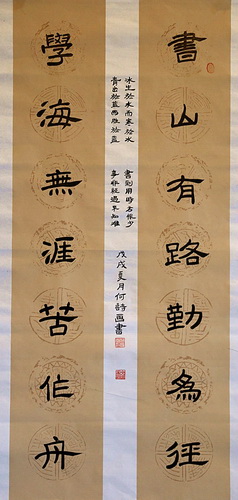 書山有路勤爲徑
冰生於水而寒於水
青出於藍而勝於藍
書到用時方恨少
事非經過不知難
戊戌夏月何詩画書
學海無涯苦作舟